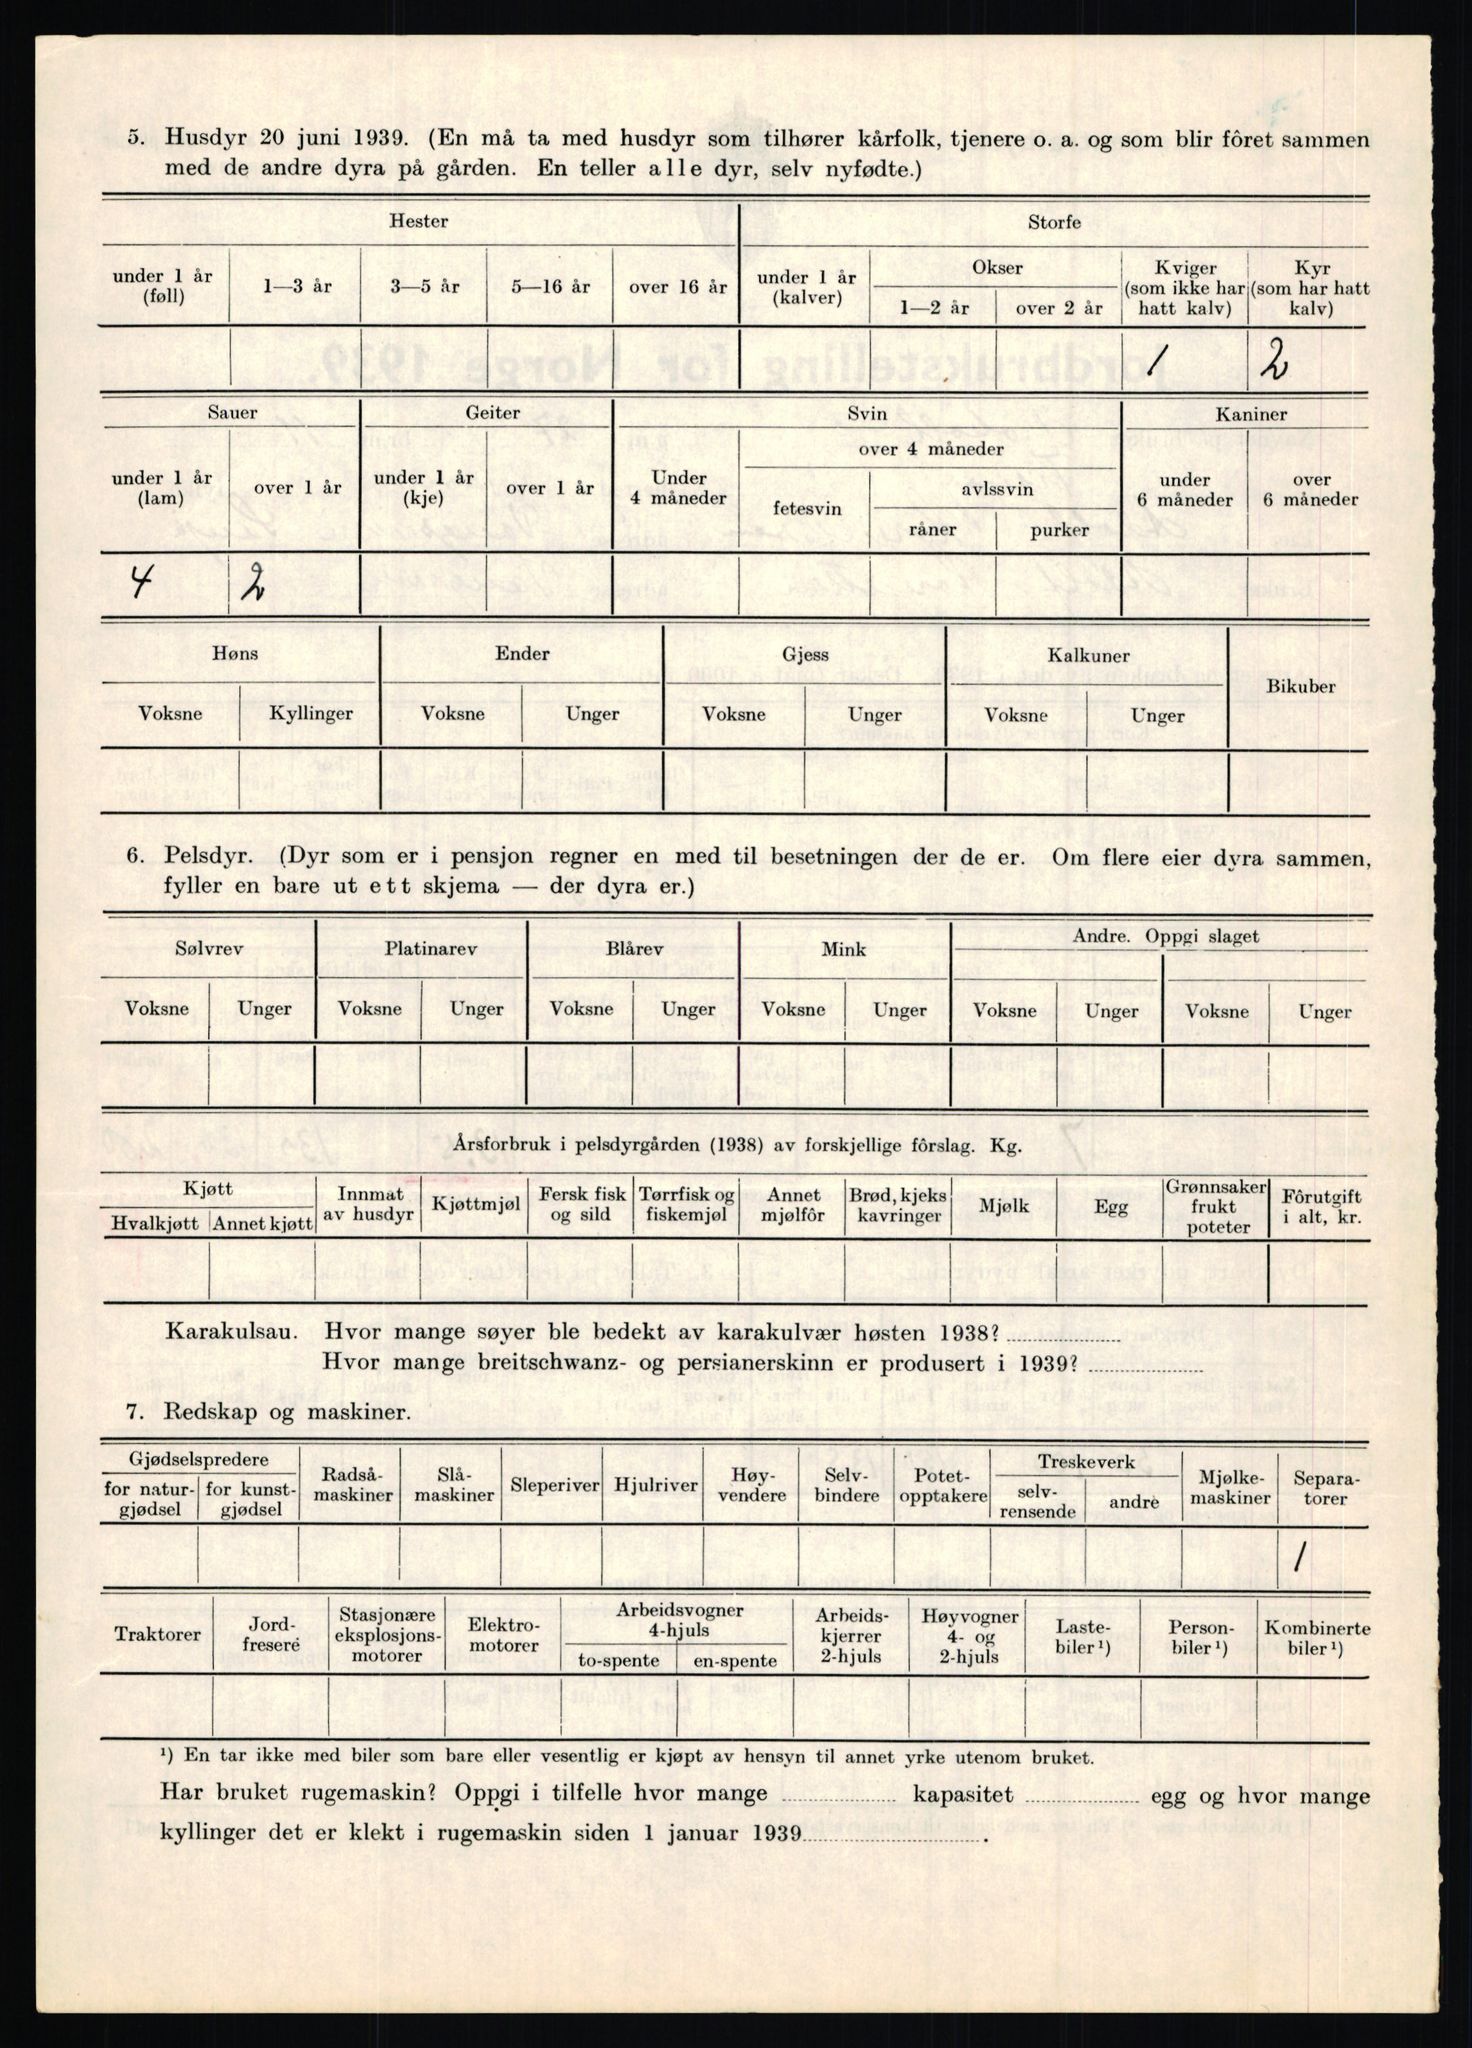 5. Husdyr 20 juni 1939. (En må ta med husdyr som tilhører kårfolk, tjenere o. a. og som blir fôret sammen
med de andre dyra på gården. En teller alle dyr, selv nyfødte.)
Hester Storfe
under 1 år (føll) 1—3 år 3—5 år 5—16 år over 16 år under 1 år (kalver) Okser 1—2 år over 2 år Kviger (som ikke har hatt kalv) Kyr (som har hatt kalv)
1 2
Sauer Geiter Svin Kaniner
under 1 år (lam) over 1 år under 1 år (kje) over 1 år Under 4 måneder over 4 måneder fetesvin avlssvin råner purker under 6 måneder over 6 måneder
4 2
Høns Ender Gjess Kalkuner Bikuber
Voksne Kyllinger Voksne Unger Voksne Unger Voksne Unger
6. Pelsdyr. (Dyr som er i pensjon regner en med til besetningen der de er. Om flere eier dyra sammen,
fyller en bare ut ett skjema — der dyra er.)
Sølvrev Platinarev Blårev Mink Andre. Oppgi slaget
Voksne Unger Voksne Unger Voksne Unger Voksne Unger Voksne Unger Voksne Unger
Årsforbruk i pelsdyrgården (1938) av forskjellige fôrslag. Kg.
Kjøtt Hvalkjøtt Annet kjøtt Innmat av husdyr Kjøttmjøl Fersk fisk og sild Tørrfisk og fiskemjøl Annet mjølfôr Brød, kjeks kavringer Mjølk Egg Grønnsaker frukt poteter Fôrutgift i alt, kr.
Karakulsau. Hvor mange søyer ble bedekt av karakulvær høsten 1938?
Hvor mange breitschwanz- og persianerskinn er produsert i 1939?
7. Redskap og maskiner.
Gjødselspredere for natur-gjødsel for kunst-gjødsel Radså-maskiner Slå-maskiner Sleperiver Hjulriver Høy-vendere Selv-bindere Potet-opptakere Treskeverk selv-rensende andre Mjølke-maskiner Separa-torer
1
Traktorer Jord-fresere Stasjonære eksplosjons-motorer Elektro-motorer Arbeidsvogner 4-hjuls to-spente en-spente Arbeids-kjerrer 2-hjuls Høyvogner 4- og 2-hjuls Laste-biler¹) Person-biler¹) Kombinerte biler¹)
¹) En tar ikke med biler som bare eller vesentlig er kjøpt av hensyn til annet yrke utenom bruket.
Har bruket rugemaskin? Oppgi i tilfelle hvor mange kapasitet egg og hvor mange
kyllinger det er klekt i rugemaskin siden 1 januar 1939 .